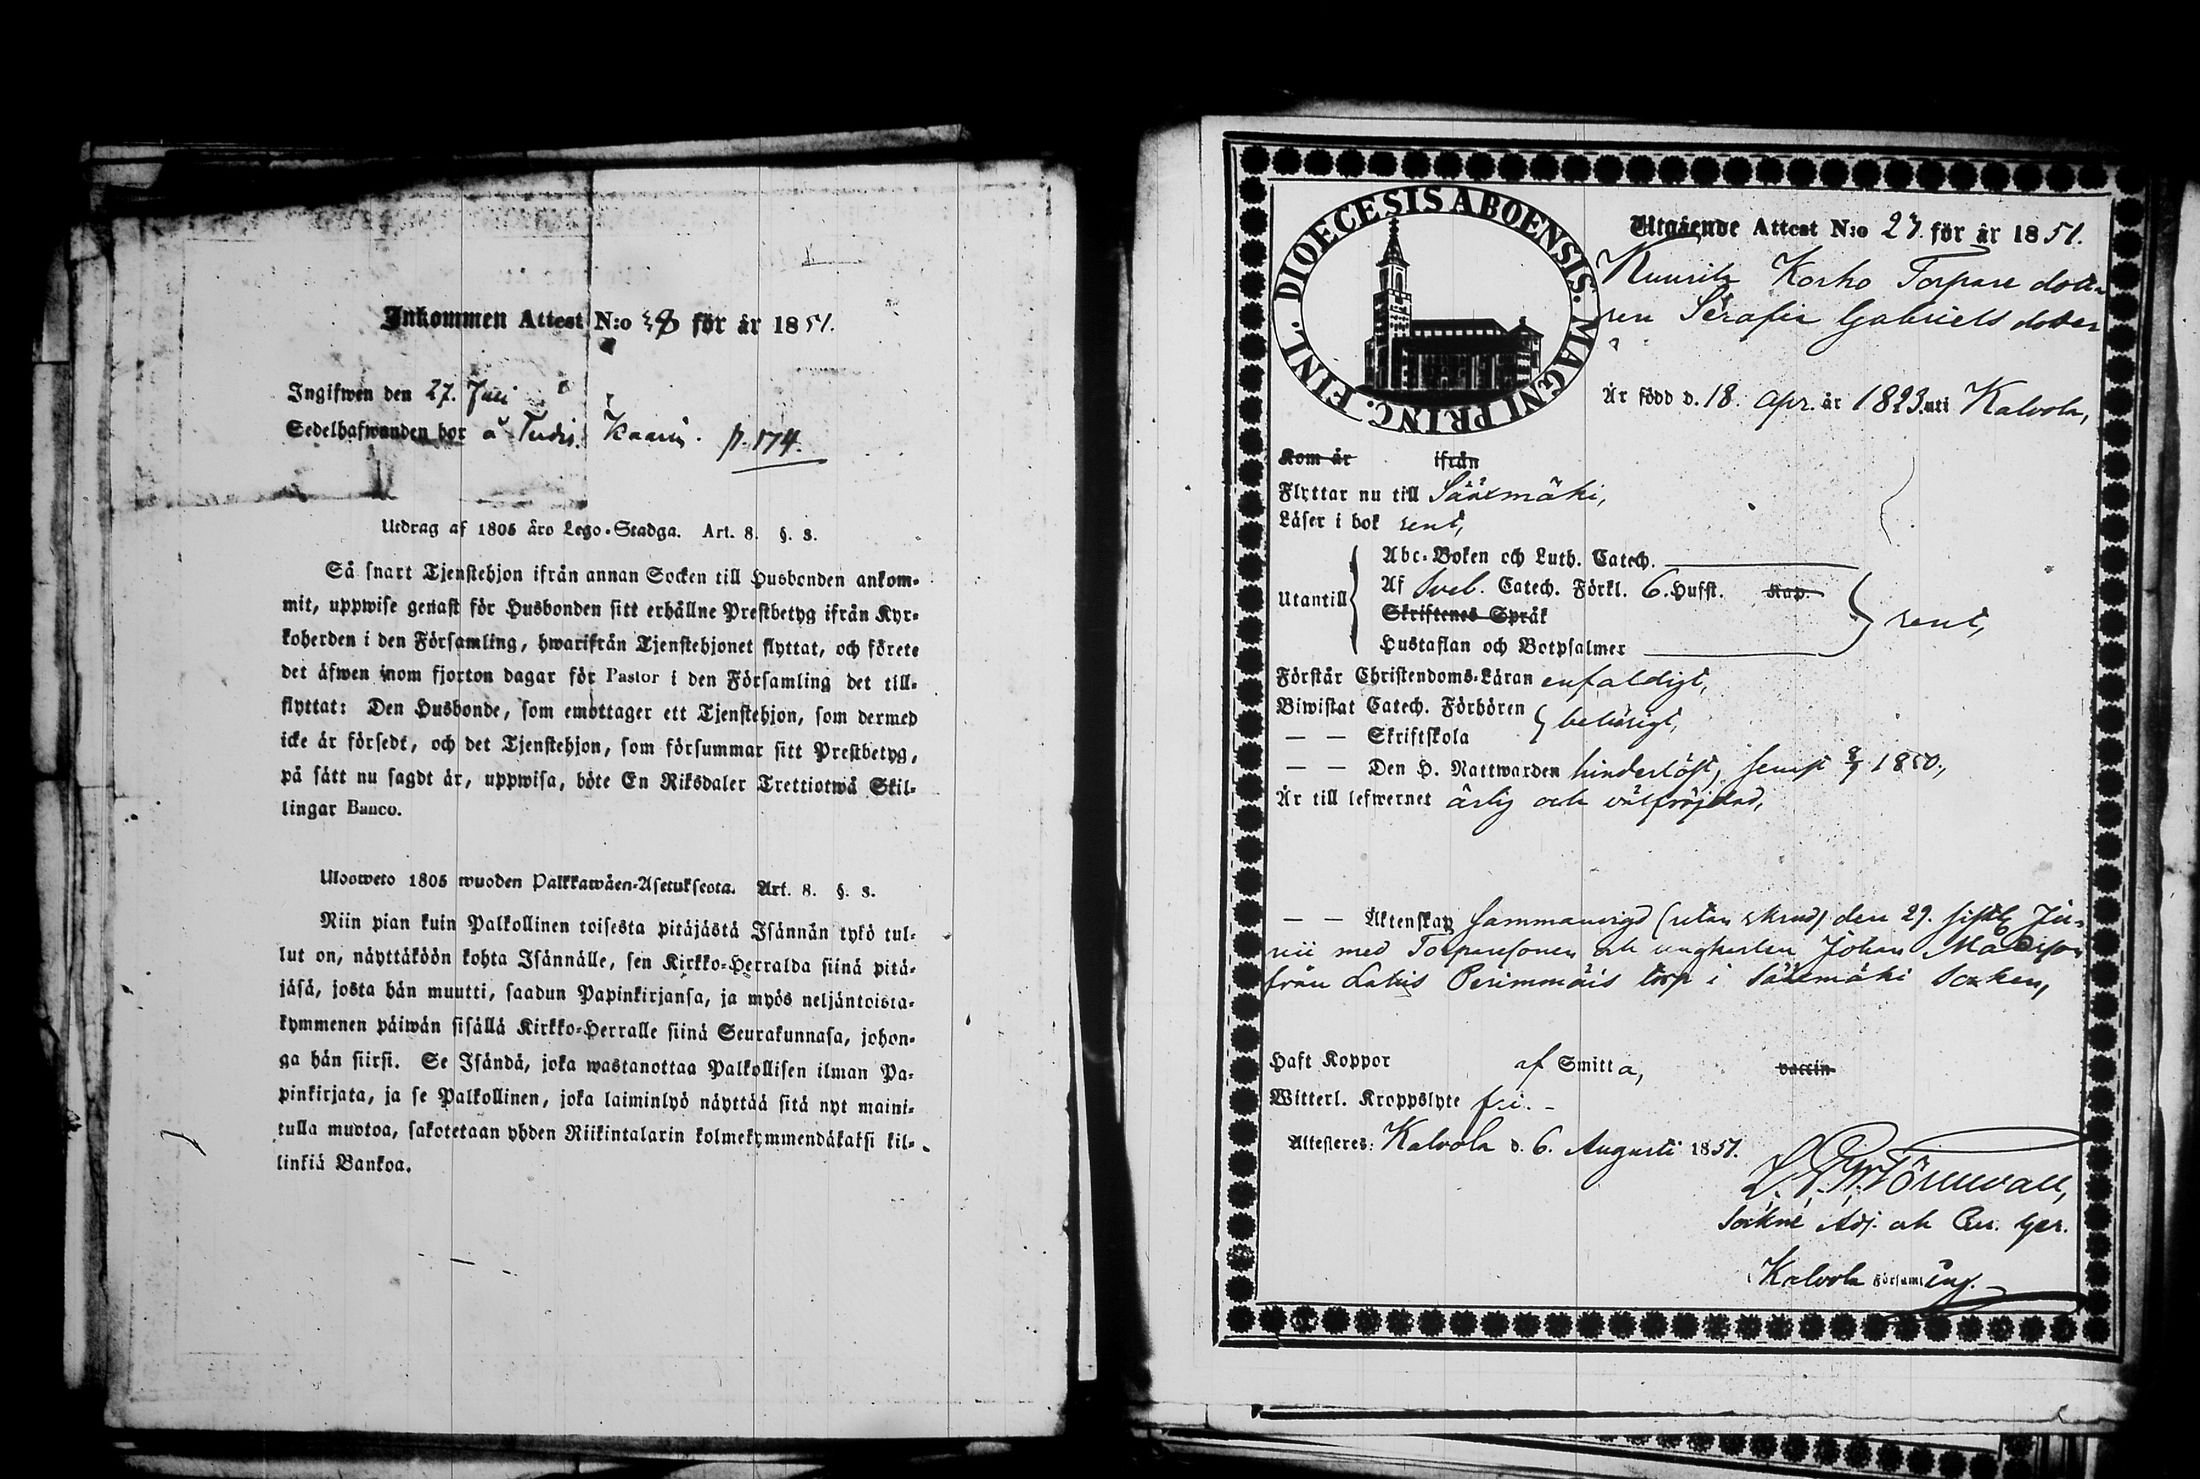 Inkommen Attest N:o 38 för år 1851.
Ingifwen den 27. Juli
Sedelhafwanden bor å Kaari. p. 174.
Utdrag af 1805 åro Lego-Stadga. Art. 8. §. 3.
Så snart Tjenstehjon ifrån annan Socken till Husbonden ankom-
mit, uppwise genast för Husbonden sitt erhållne Prestbetyg ifrån Kyr-
koherden i den Församling, hwarifrån Tjenstehjonet flyttat, och förete
det äfwen inom fjorton dagar för Pastor i den Församling det till-
flyttat: Den Husbonde, som emottager ett Tjenstehjon, som dermed
icke är försedt, och det Tjenstehjon, som försummar sitt Prestbetyg,
på sätt nu sagdt är, uppwisa, böte En Riksdaler Trettiotwå Skil-
lingar Banco.
Ulosweto 1805 wuoden Palkkawäen-Asetuksesta. Art. 8. §. 3.
Niin pian kuin Palkollinen toisesta pitäjästä Isännän tykö tul-
lut on, näyttäköön kohta Isännälle, sen Kirkko-Herralda siinä pitä-
jäsä, josta hän muutti, saadun Papinkirjansa, ja myös neljäntoista-
kymmenen päiwän sisällä Kirkko-Herralle siinä Seurakunnasa, johon-
ga hän siirsi. Se Isändä, joka wastanottaa Palkollisen ilman Pa-
pinkirjata, ja se Palkollinen, joka laiminlyö näyttää sitä nyt maini-
tulla muotoa, sakotetaan yhden Riikintalarin kolmekymmendäkaksi kil-
linkiä Bankoa.
DIOECESIS ABOENSIS. MAGNI PRINC. FINL.
Utgående Attest N:o 27. för år 1851.
Korho Torpare dott-
ren Serafia Gabriels dotter
Är född d. 18. apr. år 1823. uti Kalvola,
Kom år ifrån
Flyttar nu till Sääxmäki,
Läser i bok rent,
Utantill
Abc-Boken och Luth. Catech.
Af Sveb. Catech. Förkl. 6. Hufst. Kap.
Skriftenes Språk
Hustaflan och Botpsalmer
rent,
Förstår Christendoms-Läran enfaldigt,
Biwistat Catech. Förhören
— — Skriftskola
behörigt,
— — Den H. Nattwarden hinderlöst, senast 1850.,
Är till lefwernet ärlig och välfrejdad,
— — Äktenskap Sammanvigd (utan skrud) den 29. sistl. Ju-
nii med Torparesonen och ungkarlen Johan
från torp i Sääxmäki Socken,
Haft Koppor af Smitta, vaccin
Witterl. Kroppslyte fri. -
Attesteres: Kalvola d. 6. Augusti 1851.
Törnwall,
Sockne Adj. och
i Kalvola Församling.